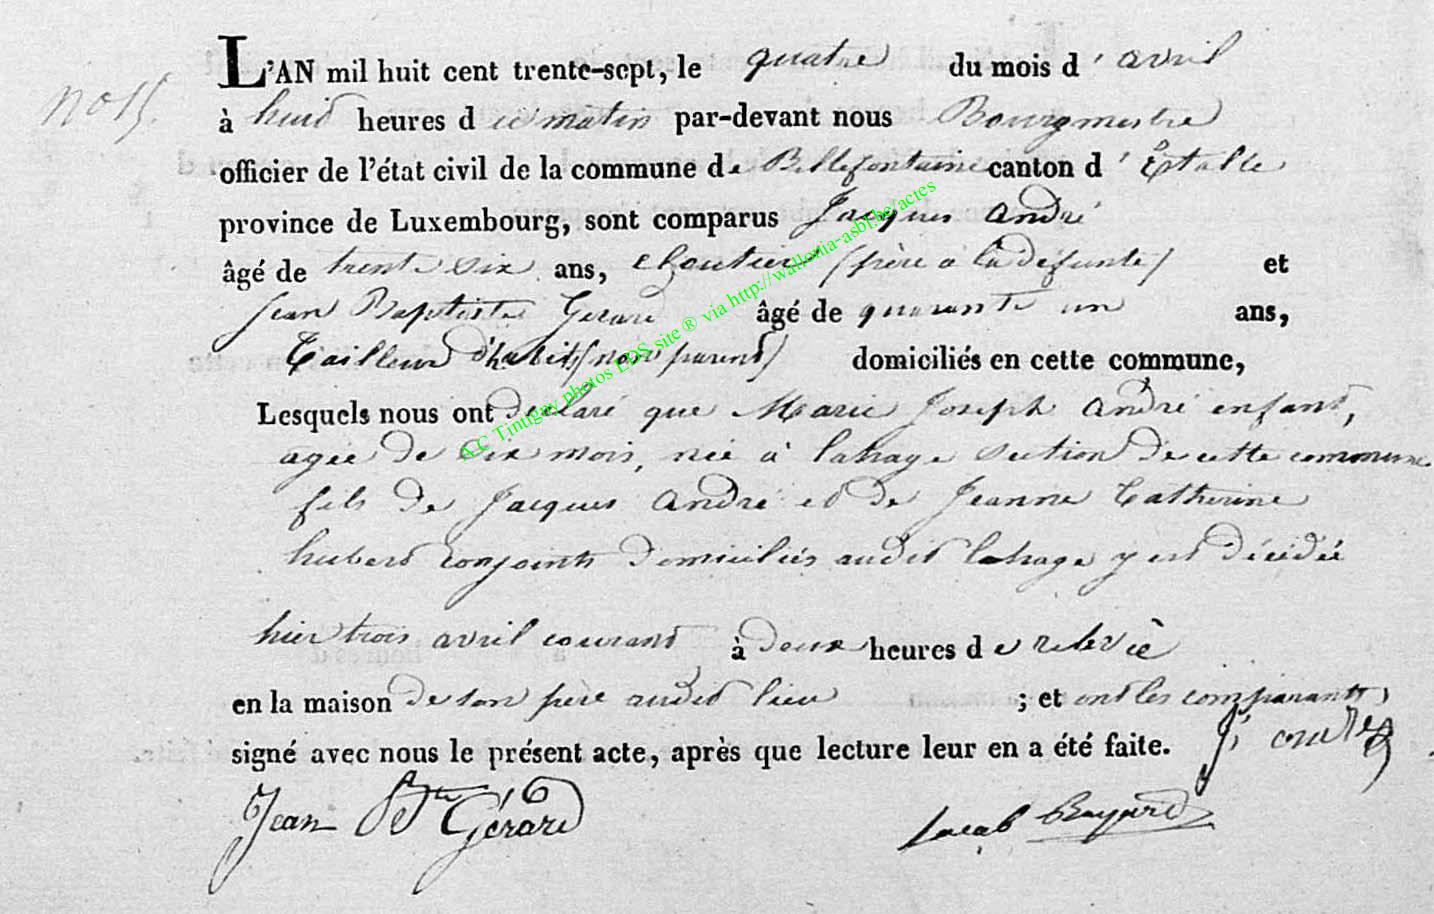 L'AN mil huit cent trente-sept, le quatre du mois d'avril
no 15.
à huit heures du matin par-devant nous Bourgmestre
officier de l'état civil de la commune de Bellefontaine canton d'Etalle
province de Luxembourg, sont comparus Jacques André
âgé de trente six ans, cloutier (père a la défunte) et
Jean Baptiste Gerard âgé de quarante un ans,
Tailleur d'habits (non parent) domiciliés en cette commune,
Lesquels nous ont declaré que Marie Joseph André enfant,
agée de six mois, née à lahage section de cette commune
fils de Jacques André et de Jeanne Catherine
hubert conjoints domiciliés audit lahage y est décédée
hier trois avril courant à deux heures de relevée
en la maison de son père audit lieu ; et ont les comparants
signé avec nous le présent acte, après que lecture leur en a été faite. J
Jean Bte Gérard
Jacob Bayard
A.C Tintigny photos LDS site ® via http://wallonia-asbl.be/actes